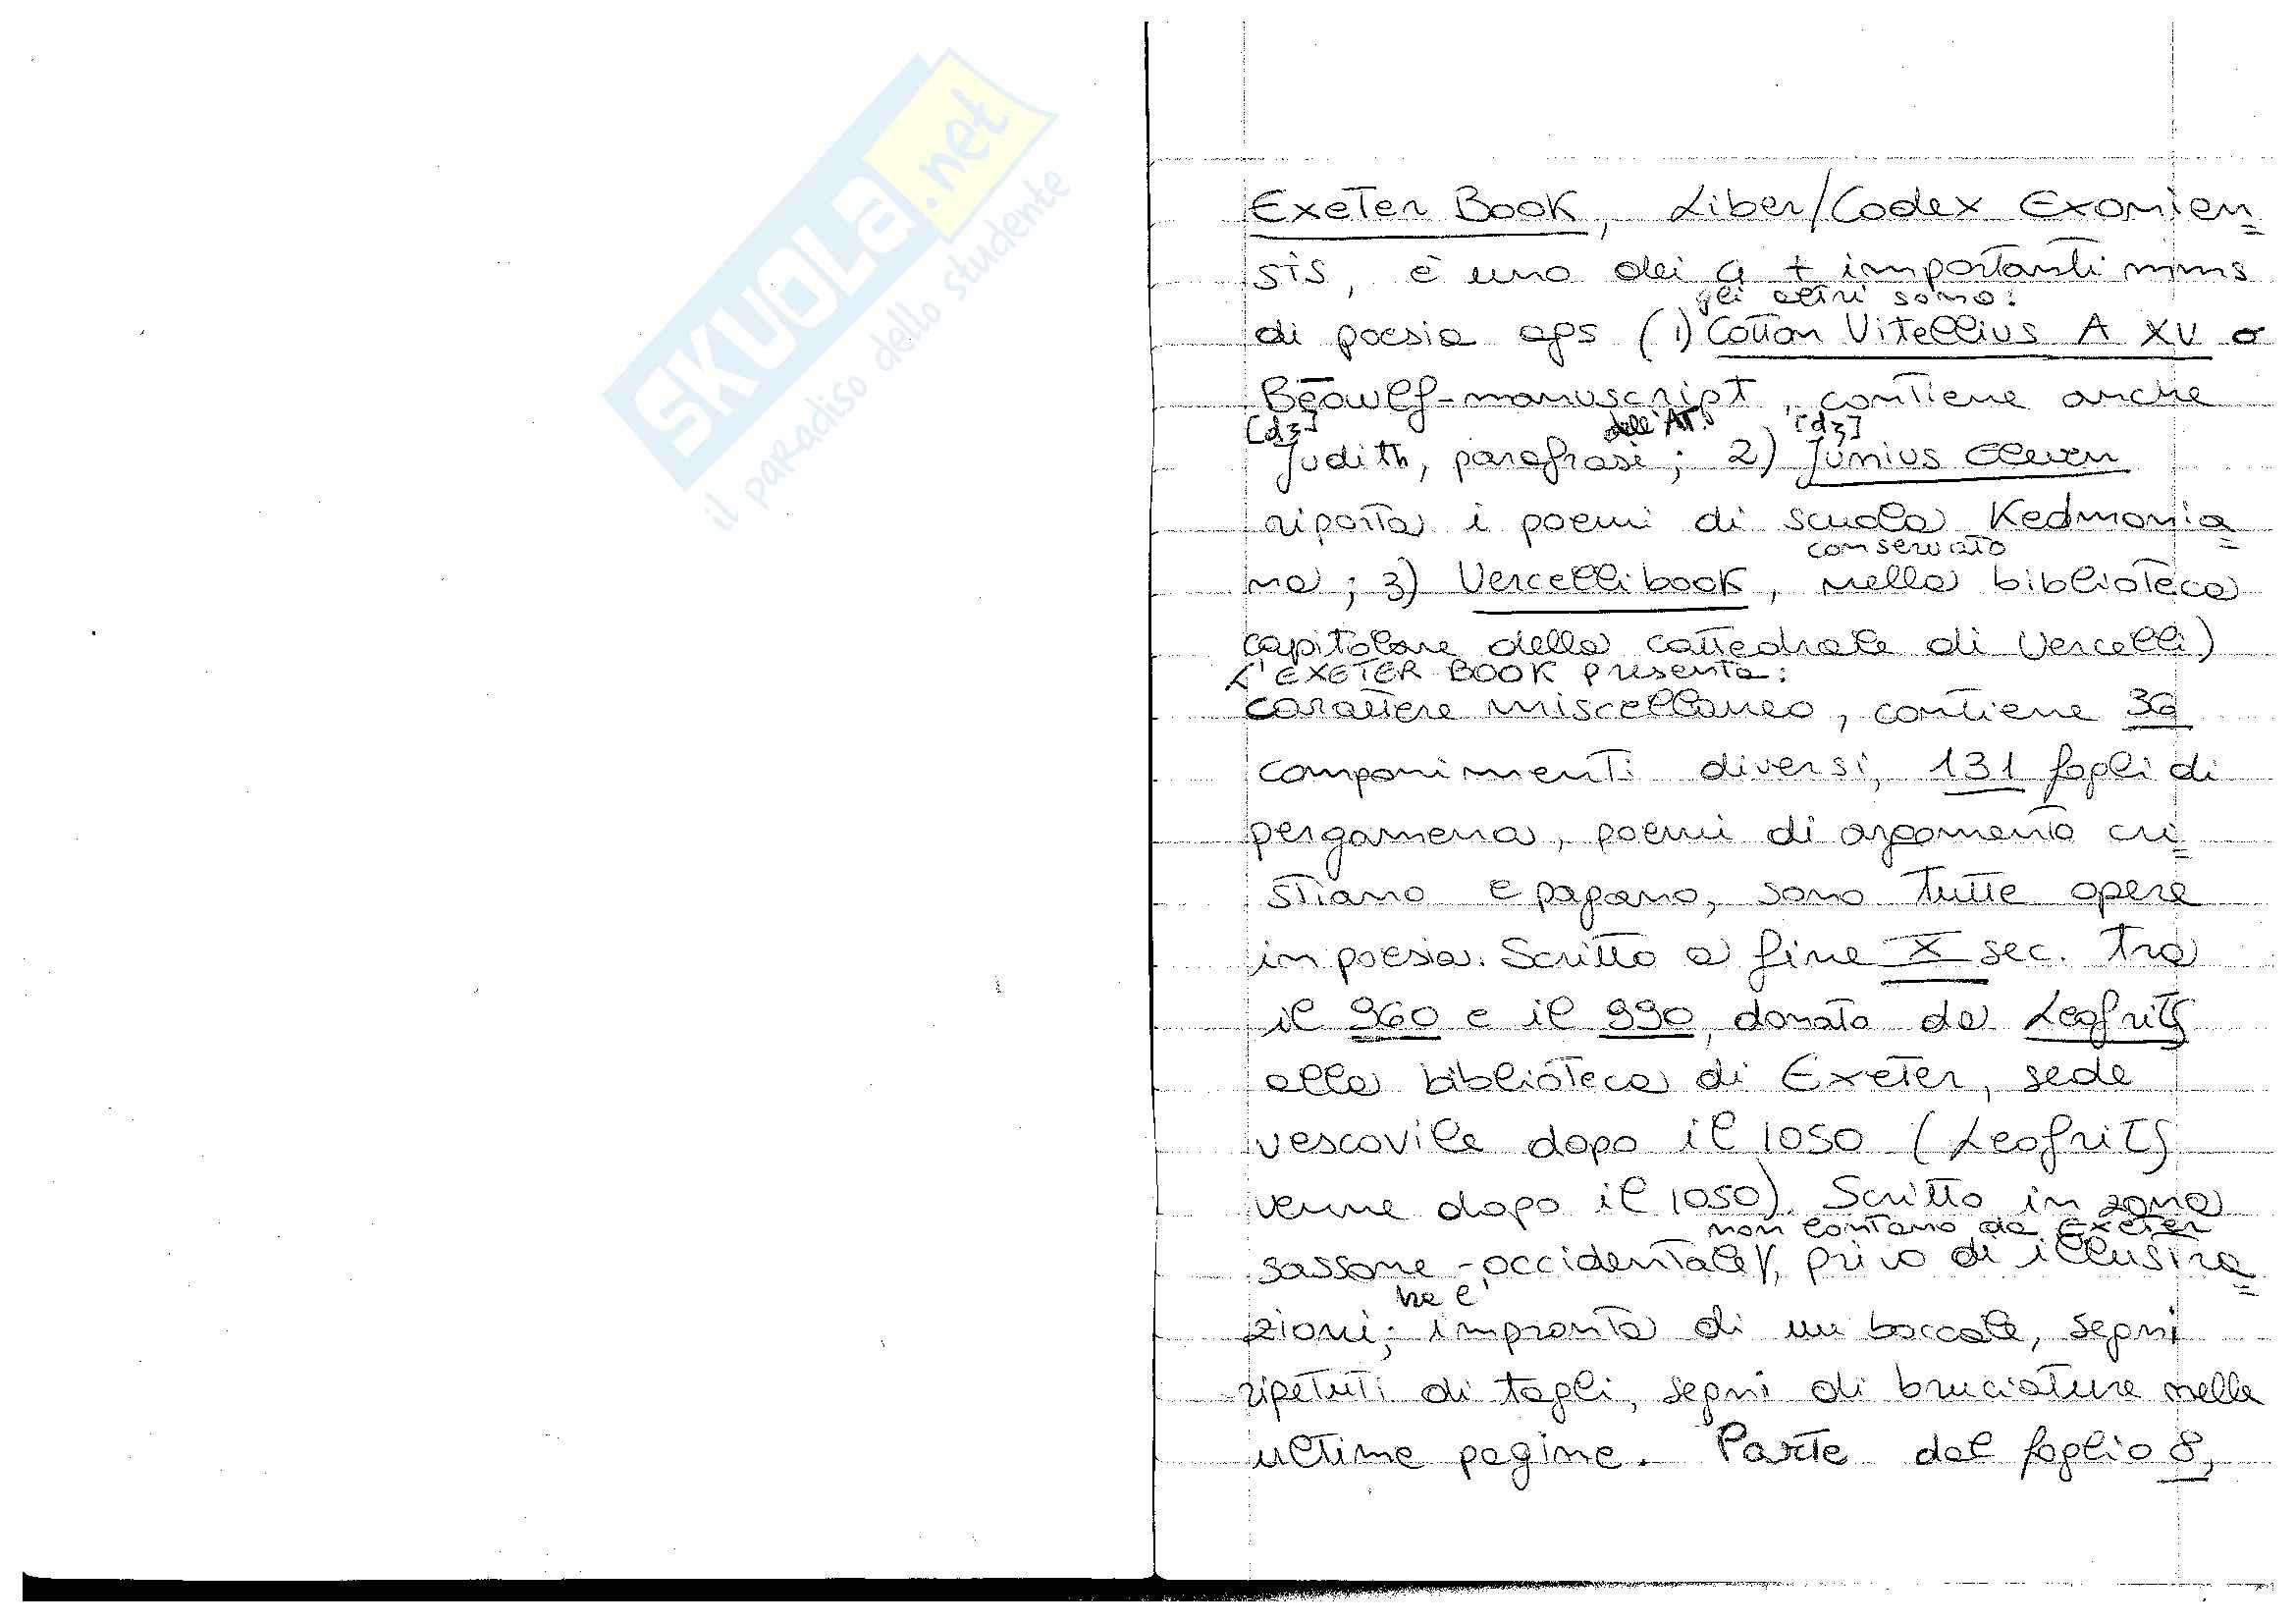 SKUOLA.net
il paradiso dello studente
Exeter Book, Liber/Codex Exonien=
sis, è uno dei 4 + importanti mms
gli altri sono:
di poesia ags (1) Cotton Vitellius A XV o
Bēowulf-manuscript, contiene anche
[dʒ] dell'AT! [dʒ]
Judith, parafrasi; 2) Junius eleven
riporta i poemi di scuola Kedmonia=
conservato
na; 3) Vercelli book, nella biblioteca
capitolare della cattedrale di Vercelli)
L'EXETER BOOK presenta:
carattere miscellaneo, contiene 36
componimenti diversi, 131 fogli di
pergamena, poemi di argomento cri=
stiano e pagano, sono tutte opere
in poesia. Scritto a fine X sec. tra
il 960 e il 990, donato da Leofritʃ
alla biblioteca di Exeter, sede
vescovile dopo il 1050 (Leofritʃ
venne dopo il 1050). Scritto in zona
non lontano da Exeter
sassone-occidentale, privo di illustra=
ha l'
zioni; impronta di un boccale, segni
ripetuti di tagli, segni di bruciature nelle
ultime pagine. Parte dal foglio 8,